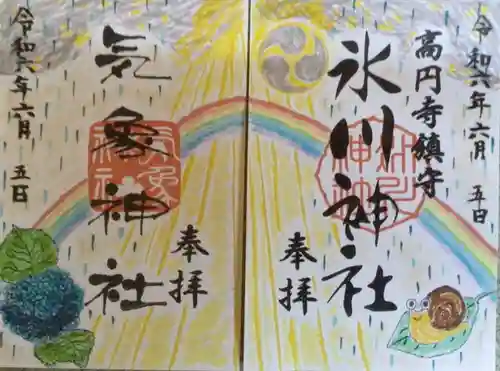 令和六年六月 五日
高円寺鎮守
氷川神社
奉拝
令和六年六月 五日
気象神社
奉拝